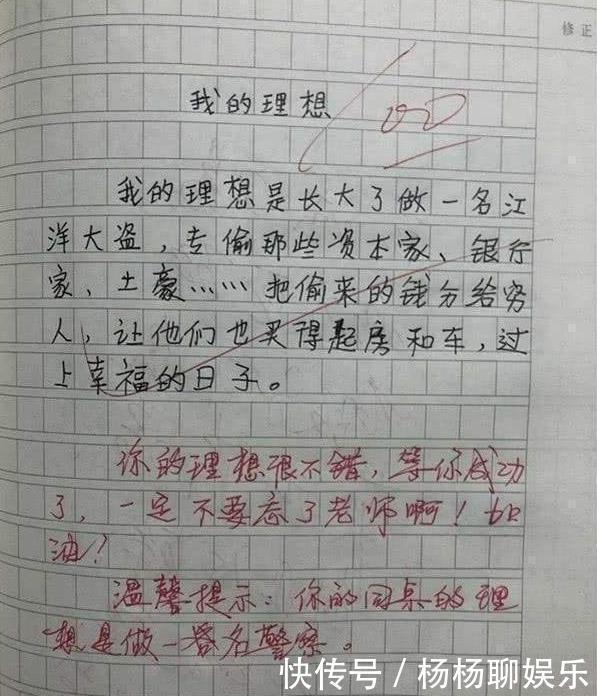 修正
我的理想
我的理想是长大了做一名江
洋大盗，专偷那些资本家、银行
家、土豪……把偷来的钱分给穷
人，让他们也买得起房和车，过
上幸福的日子。
你的理想很不错，等你成功
了，一定不要忘了老师啊！加
油？
温馨提示：你的同桌的理
想是做一番名警察。
快传号／杨杨聊娱乐